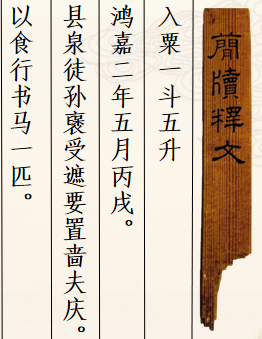 簡牘釋文
入粟一斗五升
鸿嘉二年五月丙戌。
县泉徒孙襃受遮要置啬夫庆。
以食行书马一匹。